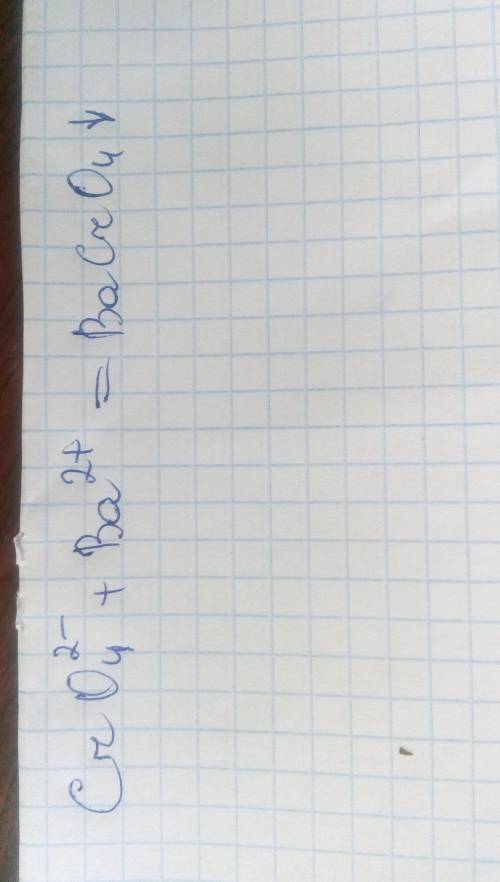 CrO₄²⁻ + Ba²⁺ = BaCrO₄↓